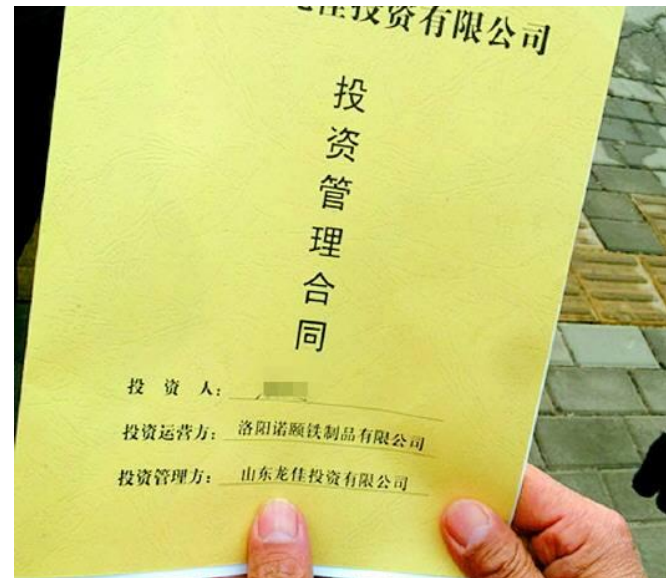 佳投资有限公司
投资管理合同
投 资 人：
投资运营方： 洛阳诺颐铁制品有限公司
投资管理方： 山东龙佳投资有限公司